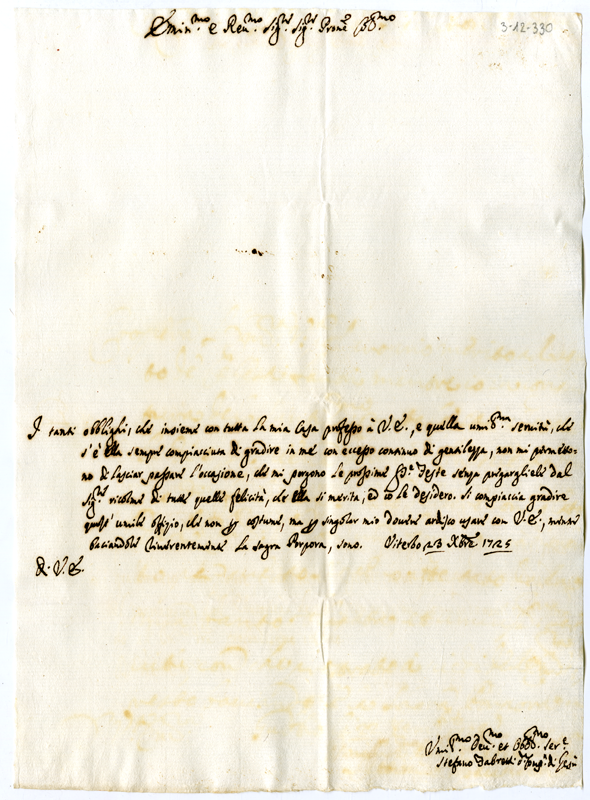 3-12-330
Emin.mo e Rev.mo Sig.re Sig.re Prone
I tanti obblighi, che insieme con tutta la mia Casa professo à V.E., e quella umil.ma servitù, che
s'è ella sempre compiaciuta di gradire in me con eccesso continuo di gentilezza, non mi permetto-
no di lasciar passare l'occasione, che mi porgono le prossime S.te Feste senza pregarglele dal
Sig.re ricolme di tutte quelle felicità, che ella si merita, ed io le desidero. Si compiaccia gradire
quest'umile offizio, che non per costume, ma per singolar mio dovere ardisco usare con V.E., mentre
baciandole riverentemente la sagra Porpora, sono. Viterbo 23 Xbre 1725
Di V.E.
Umil.mo Dev.mo et Obb.mo Ser.e
Stefano di Gesù